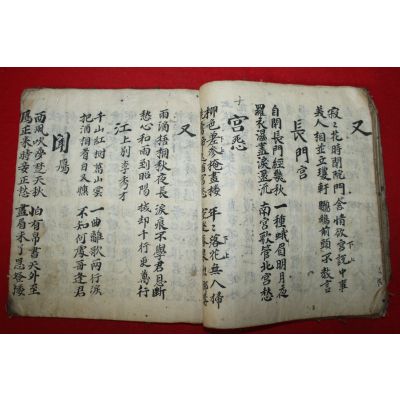 又
寂〻花時閉院門 含情欲宮說中事
美人相並立瓊軒 鸚鵡前頭不敢言
長門宮
自閉長門經幾秋 一種蛾眉明月夜
羅衣濕盡淚還流 南宮歌管北宮愁
宮怨
柳色參差掩畫樓 年〻落花無人掃
又
雨滴梧桐秋夜長 淚痕不學君恩斷
愁心和雨到昭陽 拭却千行更萬行
江上別李秀才
千山紅樹萬山雲 一曲離歌兩行淚
把酒相看日又曛 不知何處再逢君
聞鴈
西風吹夢楚天秋 怕有帛書天外至
鴈正來時妾正愁 畫眉未了思登樓